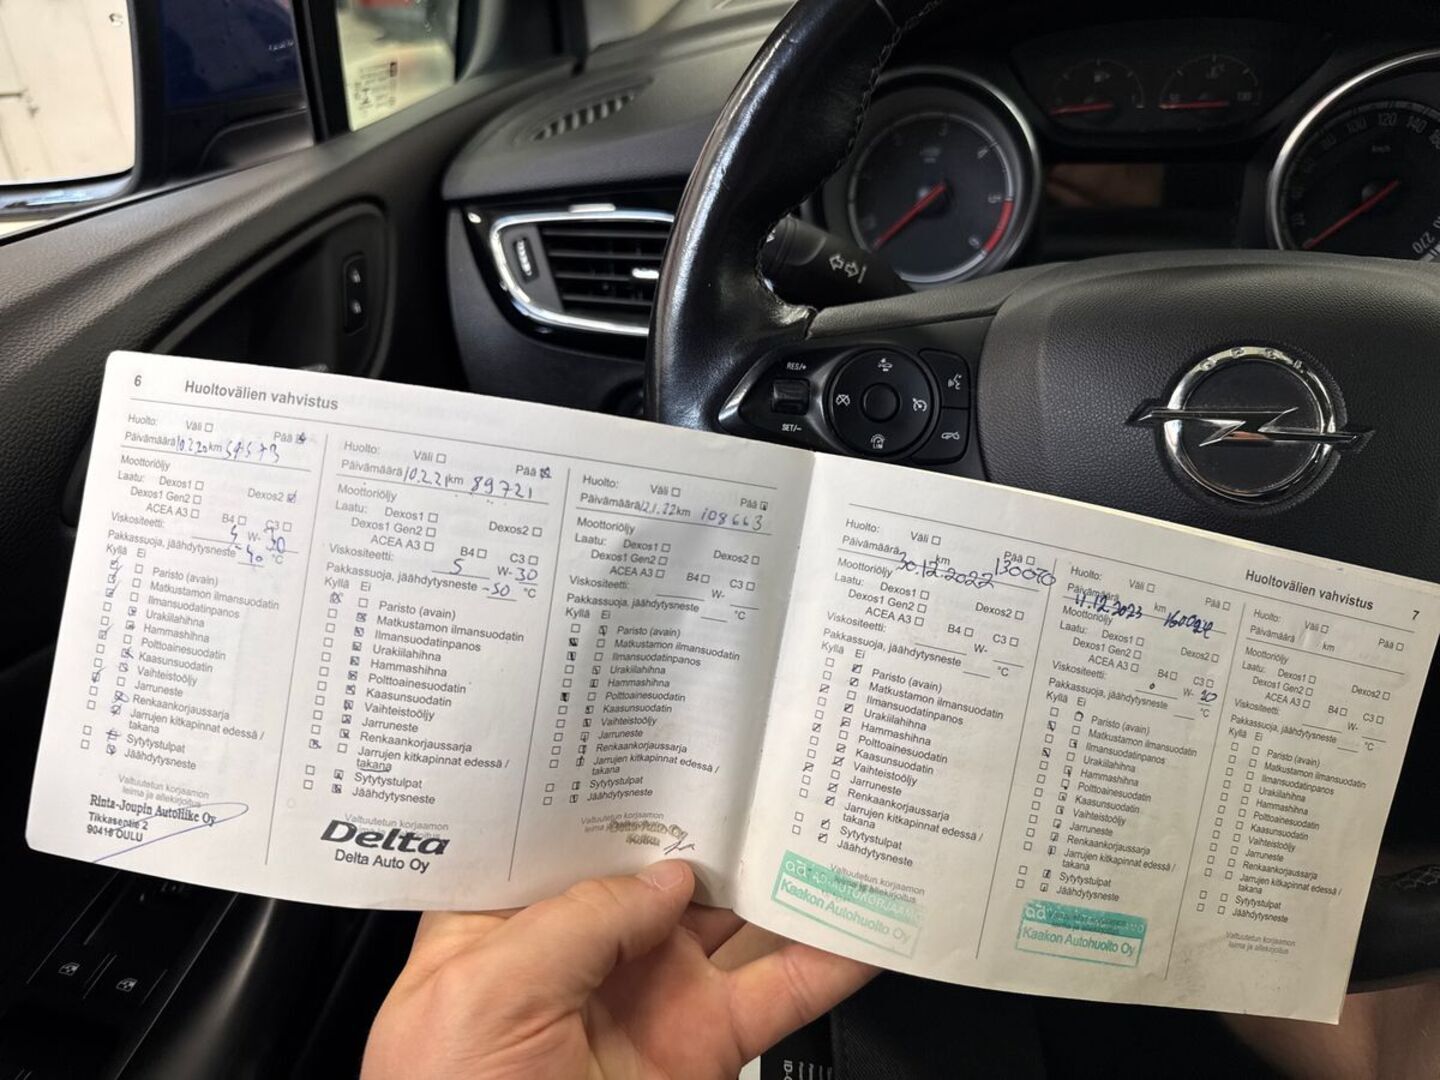 6 Huoltovälien vahvistus
Huolto: Väli Pää
Päivämäärä 10.2.20 km
Moottoriöljy
Laatu: Dexos1 Dexos2
Dexos1 Gen2
ACEA A3 B4 C3
Viskositeetti: 5 W- 30
Pakkassuoja, jäähdytysneste -40 °C
Kyllä Ei
Paristo (avain)
Matkustamon ilmansuodatin
Ilmansuodatinpanos
Urakiilahihna
Hammashihna
Polttoainesuodatin
Kaasunsuodatin
Vaihteistoöljy
Jarruneste
Renkaankorjaussarja
Jarrujen kitkapinnat edessä /
takana
Sytytystulpat
Jäähdytysneste
Valtuutetun korjaamon
leima ja allekirjoitus
Rinta-Joupin Autoliike Oy
Tikkaseptie 2
90410 OULU
Huolto: Väli Pää
Päivämäärä 10.2.21 km 89721
Moottoriöljy
Laatu: Dexos1 Dexos2
Dexos1 Gen2
ACEA A3 B4 C3
Viskositeetti: 5 W- 30
Pakkassuoja, jäähdytysneste -50 °C
Kyllä Ei
Paristo (avain)
Matkustamon ilmansuodatin
Ilmansuodatinpanos
Urakiilahihna
Hammashihna
Polttoainesuodatin
Kaasunsuodatin
Vaihteistoöljy
Jarruneste
Renkaankorjaussarja
Jarrujen kitkapinnat edessä /
takana
Sytytystulpat
Jäähdytysneste
Valtuutetun korjaamon
Delta
Delta Auto Oy
Huolto: Väli Pää
Päivämäärä 12.1.22 km 108663
Moottoriöljy
Laatu: Dexos1 Dexos2
Dexos1 Gen2
ACEA A3 B4 C3
Viskositeetti: W-
Pakkassuoja, jäähdytysneste °C
Kyllä Ei
Paristo (avain)
Matkustamon ilmansuodatin
Ilmansuodatinpanos
Urakiilahihna
Hammashihna
Polttoainesuodatin
Kaasunsuodatin
Vaihteistoöljy
Jarruneste
Renkaankorjaussarja
Jarrujen kitkapinnat edessä /
takana
Sytytystulpat
Jäähdytysneste
Valtuutetun korjaamon
Huolto: Väli Pää
Päivämäärä 30.12.2022 km 130070
Moottoriöljy
Laatu: Dexos1 Dexos2
Dexos1 Gen2
ACEA A3 B4 C3
Viskositeetti: W-
Pakkassuoja, jäähdytysneste °C
Kyllä Ei
Paristo (avain)
Matkustamon ilmansuodatin
Ilmansuodatinpanos
Urakiilahihna
Hammashihna
Polttoainesuodatin
Kaasunsuodatin
Vaihteistoöljy
Jarruneste
Renkaankorjaussarja
Jarrujen kitkapinnat edessä /
takana
Sytytystulpat
Jäähdytysneste
Valtuutetun korjaamon
ad AD-AUTOKORJAAMO
Kaakon Autohuolto Oy
Huoltovälien vahvistus 7
Huolto: Väli Pää
Päivämäärä 11.12.2023 km
Moottoriöljy
Laatu: Dexos1 Dexos2
Dexos1 Gen2
ACEA A3 B4 C3
Viskositeetti: 0 W- 20
Pakkassuoja, jäähdytysneste °C
Kyllä Ei
Paristo (avain)
Matkustamon ilmansuodatin
Ilmansuodatinpanos
Urakiilahihna
Hammashihna
Polttoainesuodatin
Kaasunsuodatin
Vaihteistoöljy
Jarruneste
Renkaankorjaussarja
Jarrujen kitkapinnat edessä /
takana
Sytytystulpat
Jäähdytysneste
ad
Kaakon Autohuolto Oy
Huolto: Väli Pää
Päivämäärä km
Moottoriöljy
Laatu: Dexos1 Dexos2
Dexos1 Gen2
ACEA A3 B4 C3
Viskositeetti: W-
Pakkassuoja, jäähdytysneste °C
Kyllä Ei
Paristo (avain)
Matkustamon ilmansuodatin
Ilmansuodatinpanos
Urakiilahihna
Hammashihna
Polttoainesuodatin
Kaasunsuodatin
Vaihteistoöljy
Jarruneste
Renkaankorjaussarja
Jarrujen kitkapinnat edessä /
takana
Sytytystulpat
Jäähdytysneste
Valtuutetun korjaamon
leima ja allekirjoitus
RES/+
SET/–
LIM
OPEL
km/h
100
120
140
270